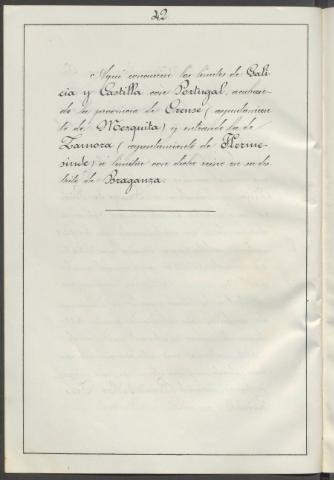 42
Aqui concurren los limites de Gali-
cia y Castilla con Portugal, acaban-
do la provincia de Orense (ayuntamien-
to de Mezquita) y entrando la de
Zamora (ayuntamiento de Herme-
sinde) á limitar con dicho reino en su dis-
trito de Braganza.